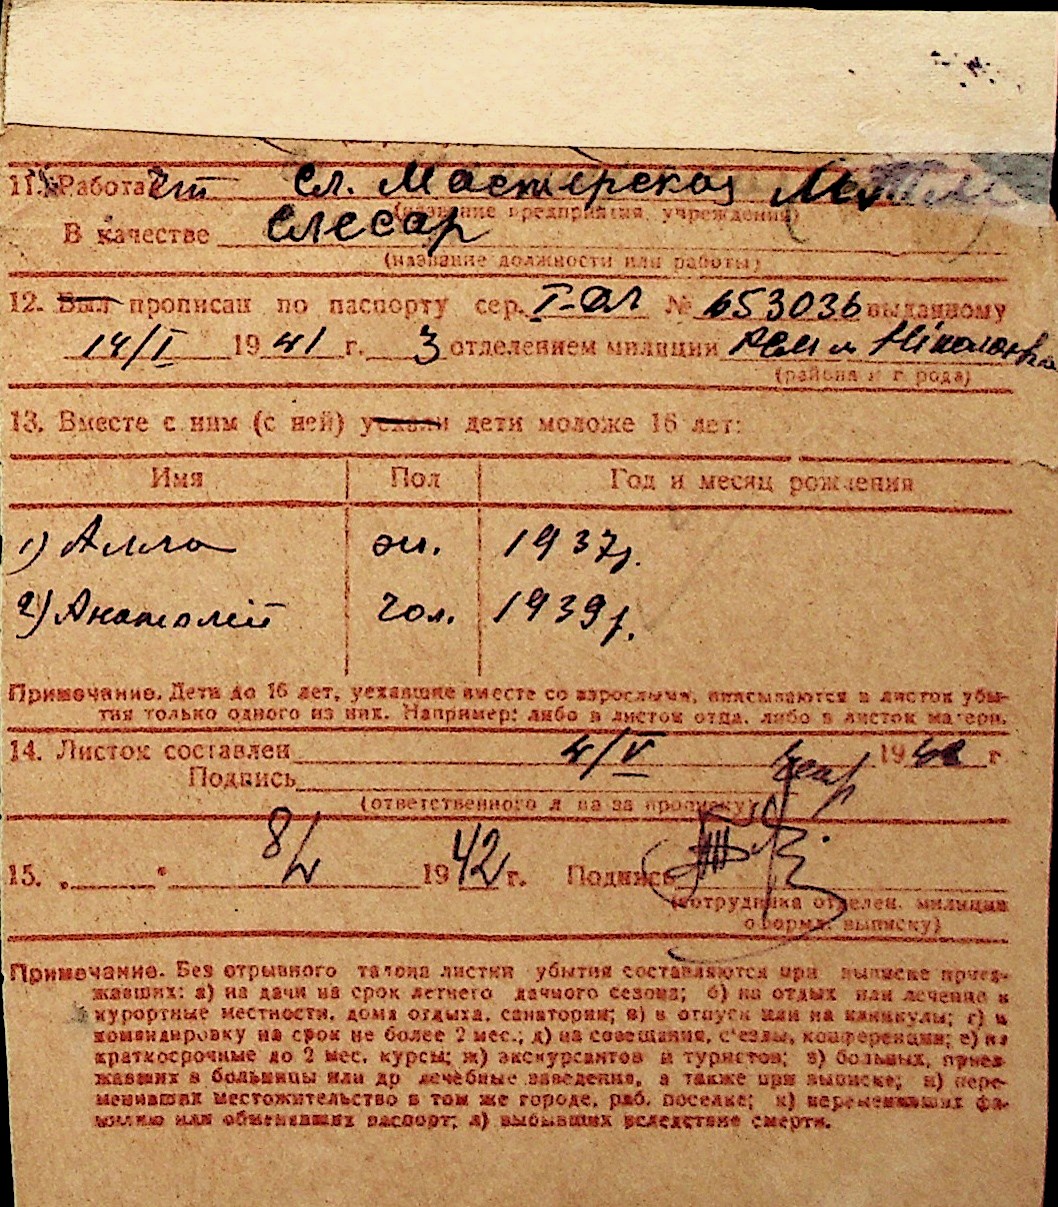 11. Работает Сл. Мастерской
(название предприятия, учреждения)
В качестве Слесар
(название должности или работы)
12. Был прописан по паспорту сер. I-ДЛ № 653036 выданному
14/I 1941 г. 3 отделением милиции
(района и города)
13. Вместе с ним (с ней) уехали дети моложе 16 лет:
Имя Пол Год и месяц рождения
1) Алла жи. 1937 р.
2) Анатолій чол. 1939 р.
Примечание. Дети до 16 лет, уехавшие вместе со взрослыми, вписываются в листок убы-
тия только одного из них. Например: либо в листок отца, либо в листок матери.
14. Листок составлен 4/V 1942 г.
Подпись
(ответственного лица за прописку)
15. „ " 8/V 1942 г. Подпись
(сотрудника отделен. милиции
оформл. выписку)
Примечание. Без отрывного талона листки убытия составляются при выписке приез-
жавших: а) на дачи на срок летнего дачного сезона; б) на отдых или лечение в
курортные местности, дома отдыха, санатории; в) в отпуск или на каникулы; г) в
командировку на срок не более 2 мес.; д) на совещания, съезды, конференции; е) на
краткосрочные до 2 мес. курсы; ж) экскурсантов и туристов; з) больных, приез-
жавших в больницы или др лечебные заведения, а также при выписке; и) пере-
менивших местожительство в том же городе, раб. поселке; к) переменивших фа-
милию или обменивших паспорт; л) выбывших вследствие смерти.